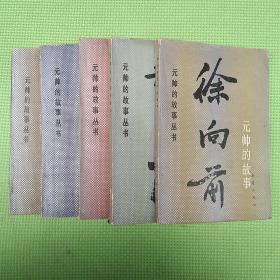 元帅的故事丛书
元帅的故事丛书
元帅的故事丛书
元帅的故事丛书
元帅的故事丛书
徐向前
元帅的故事